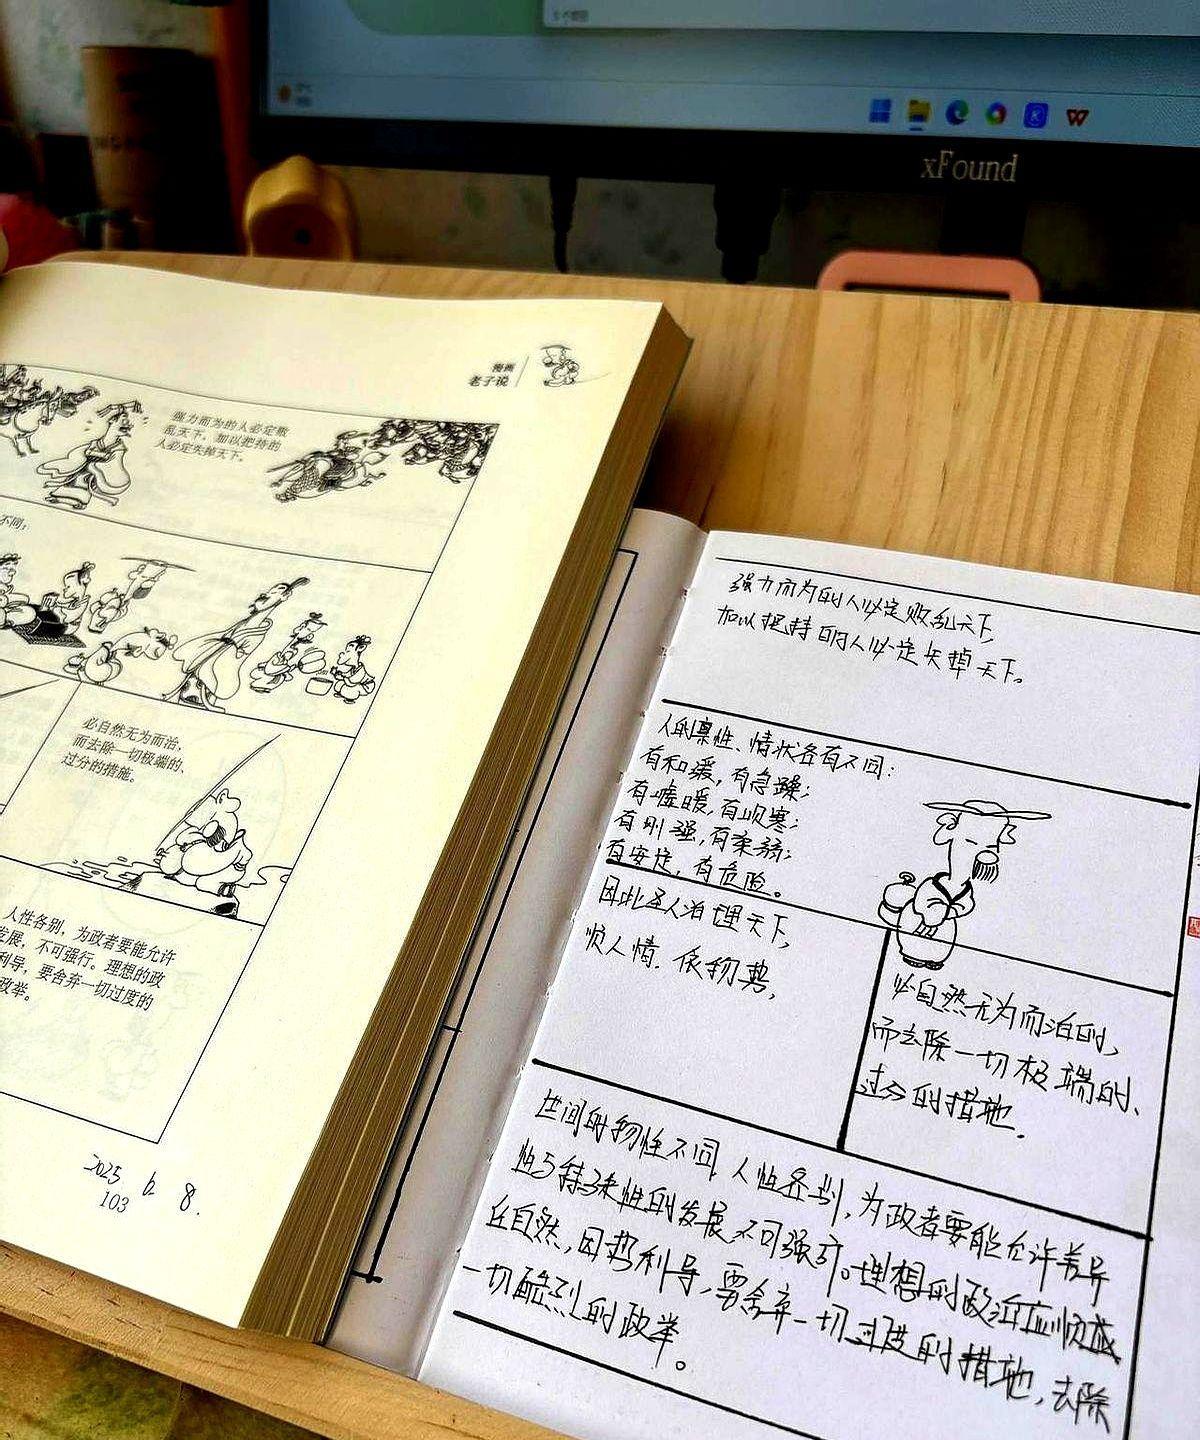 xFound
漫画
老子说
强力而为的人必定败
乱天下，加以把持的
人必定失掉天下。
不同：
必自然无为而治，
而去除一切极端的、
过分的措施。
人性各别，为政者要能允许
发展，不可强行。理想的政
利导，要舍弃一切过度的
政举。
2025 6. 8.
103
强力而为的人必定败乱天下，
加以把持的人必定失掉天下。
人的禀性、情状各有不同：
有和缓，有急躁；
有嘘暖，有吹寒；
有刚强，有柔弱；
有安定，有危险。
因此圣人治理天下，
顺人情，依物势，
必自然无为而治的，
而去除一切极端的、
过分的措施.
世间的物性不同，人性各别，为政者要能允许差异
性与特殊性的发展，不可强行。理想的政治应顺应
任自然，因势利导，要舍弃一切过度的措施，去除
一切酷烈的政举。